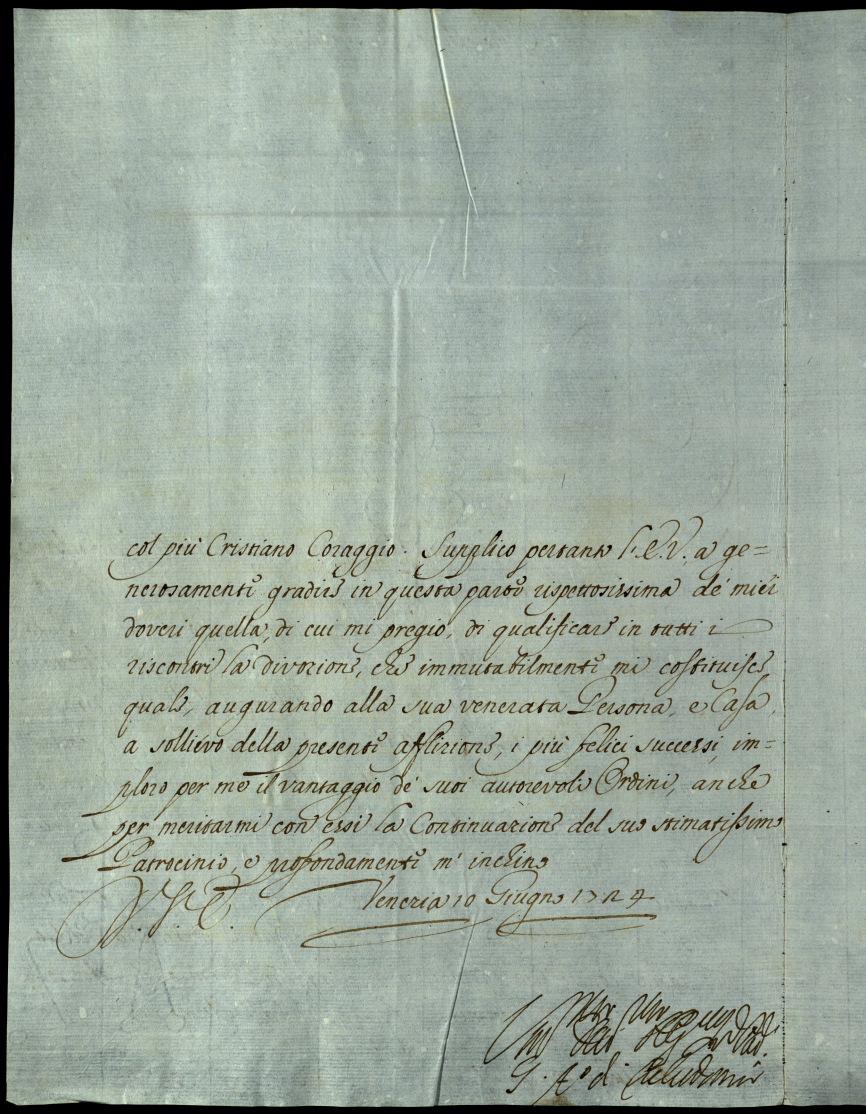 col più Cristiano Coraggio. Supplico pertanto V.E.V. a ge=
nerosamente gradire in questa parte rispettosissima de' miei
doveri quella, di cui mi pregio, di qualificare in tutti i
riscontri la divozione, che immutabilmente mi costituisce,
quale, augurando alla sua venerata Persona, e Casa,
a sollievo della presente afflizione, i più felici successi, im=
ploro per me il vantaggio de' suoi autorevoli Ordini, anche
per meritarmi con essi la Continuazione del suo stimatissimo
Patrocinio, e profondamente m' inchino
Venezia 10 Giugno 1724